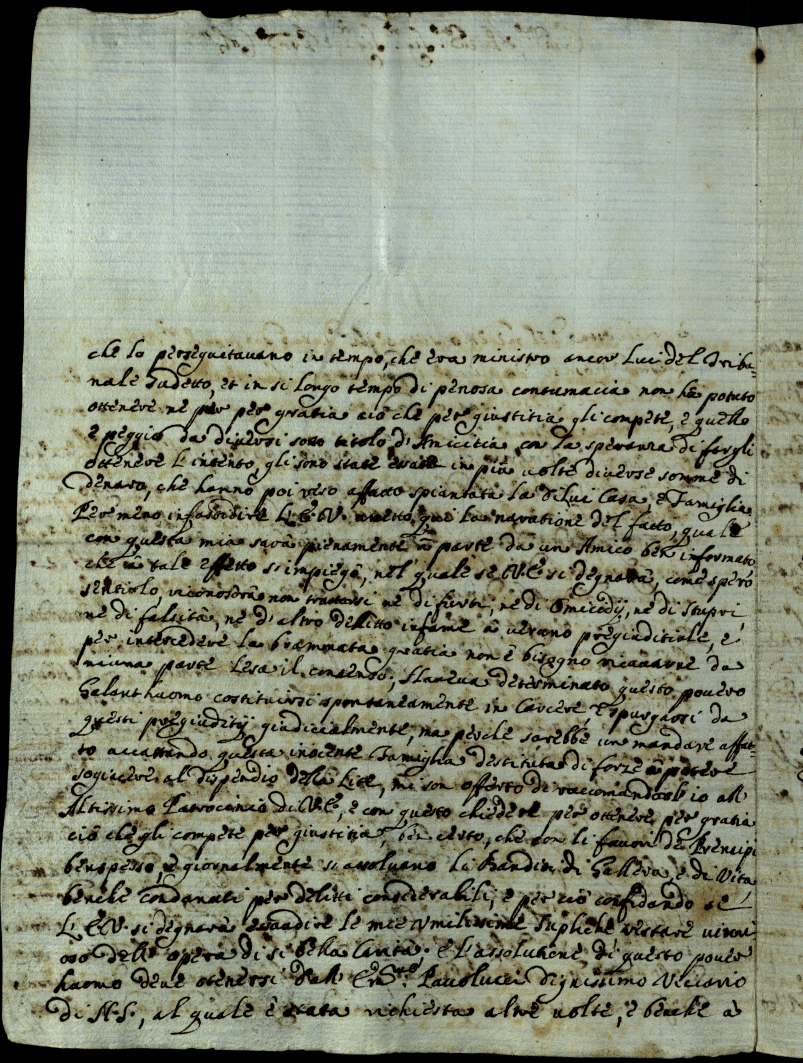 che lo perseguitauano in tempo, che era ministro ancor lui del Tribu-
nale sudetto, et in si longo tempo di penosa contumacia non ha potuto
ottenere ne pur per gratia ciò che per giustitia gli compete, e quello
è peggio da diuersi sotto titolo d'Amicitia con la speranza di fargli
ottenere l'intento, gli sono state in più uolte diuerse somme di
denaro, che hanno poi reso affatto spiantata la di lui Casa, e Famiglia
Per meno infastidire L'E.V. ometto qui la naratione del facto, quale
con questa mia sarà pienamente à parte da un Amico ben informato
che à tale effetto s'impiega, nel quale se V.E. si degnarà, come spero
sentirlo, riconoscerà non trattarsi ne di furti, ne di Omicidij, ne di stupri,
ne di falsità, ne d'altro delitto infame à ueruno pregiuditiale, e
per intercedere la brammata gratia non è bisogno ricauarne da
niuna parte lesa il consenso; Haueua determinato questo pouero
Galanthuomo costituirsi spontaneamente in Carcere, e spurgarsi da
questi pregiuditij giudicialmente, ma perche sarebbe un mandare affat-
to questa inocente Famiglia destituta di forze à potere
sogiacere al dispendio della Lite, mi son offerto di raccomandarlo io all'
Altissimo Patrocinio di V.E, e con questo chiedere per ottenere per gratia
ciò che gli compete per giustitia, ben certo, che con li fauori de Prencipi
benspesso, e giornalmente si assoluano li Banditi di Gallera, e di Vita,
benche condanati per delitti considerabili, e per ciò confidando se
L'E.V. si degnarà esaudire le mie umilissime supliche restare
dell'opera di si bella Carità; e l'assolutione di questo pouer
huomo deue otenersi dall' Em.mo Paulucci dignissimo Vicario
di N.S., al quale è stata richiesta altre uolte, e benche à